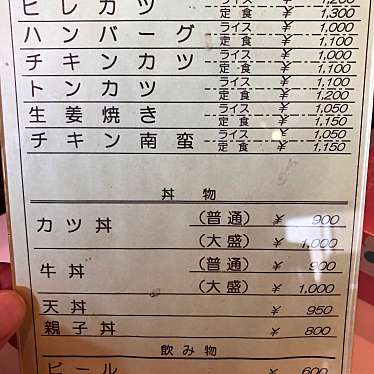 ヒレカツ ライス ¥ 1,200
定食 ¥ 1,300
ハンバーグ ライス ¥ 1,000
定食 ¥ 1,100
チキンカツ ライス ¥ 1,000
定食 ¥ 1,100
トンカツ ライス ¥ 1,100
定食 ¥ 1,200
生姜焼き ライス ¥ 1,050
定食 ¥ 1,150
チキン南蛮 ライス ¥ 1,050
定食 ¥ 1,150
丼物
カツ丼 (普通) ¥ 900
(大盛) ¥ 1,000
牛丼 (普通) ¥ 900
(大盛) ¥ 1,000
天丼 ¥ 950
親子丼 ¥ 800
飲み物
ビール ¥ 600